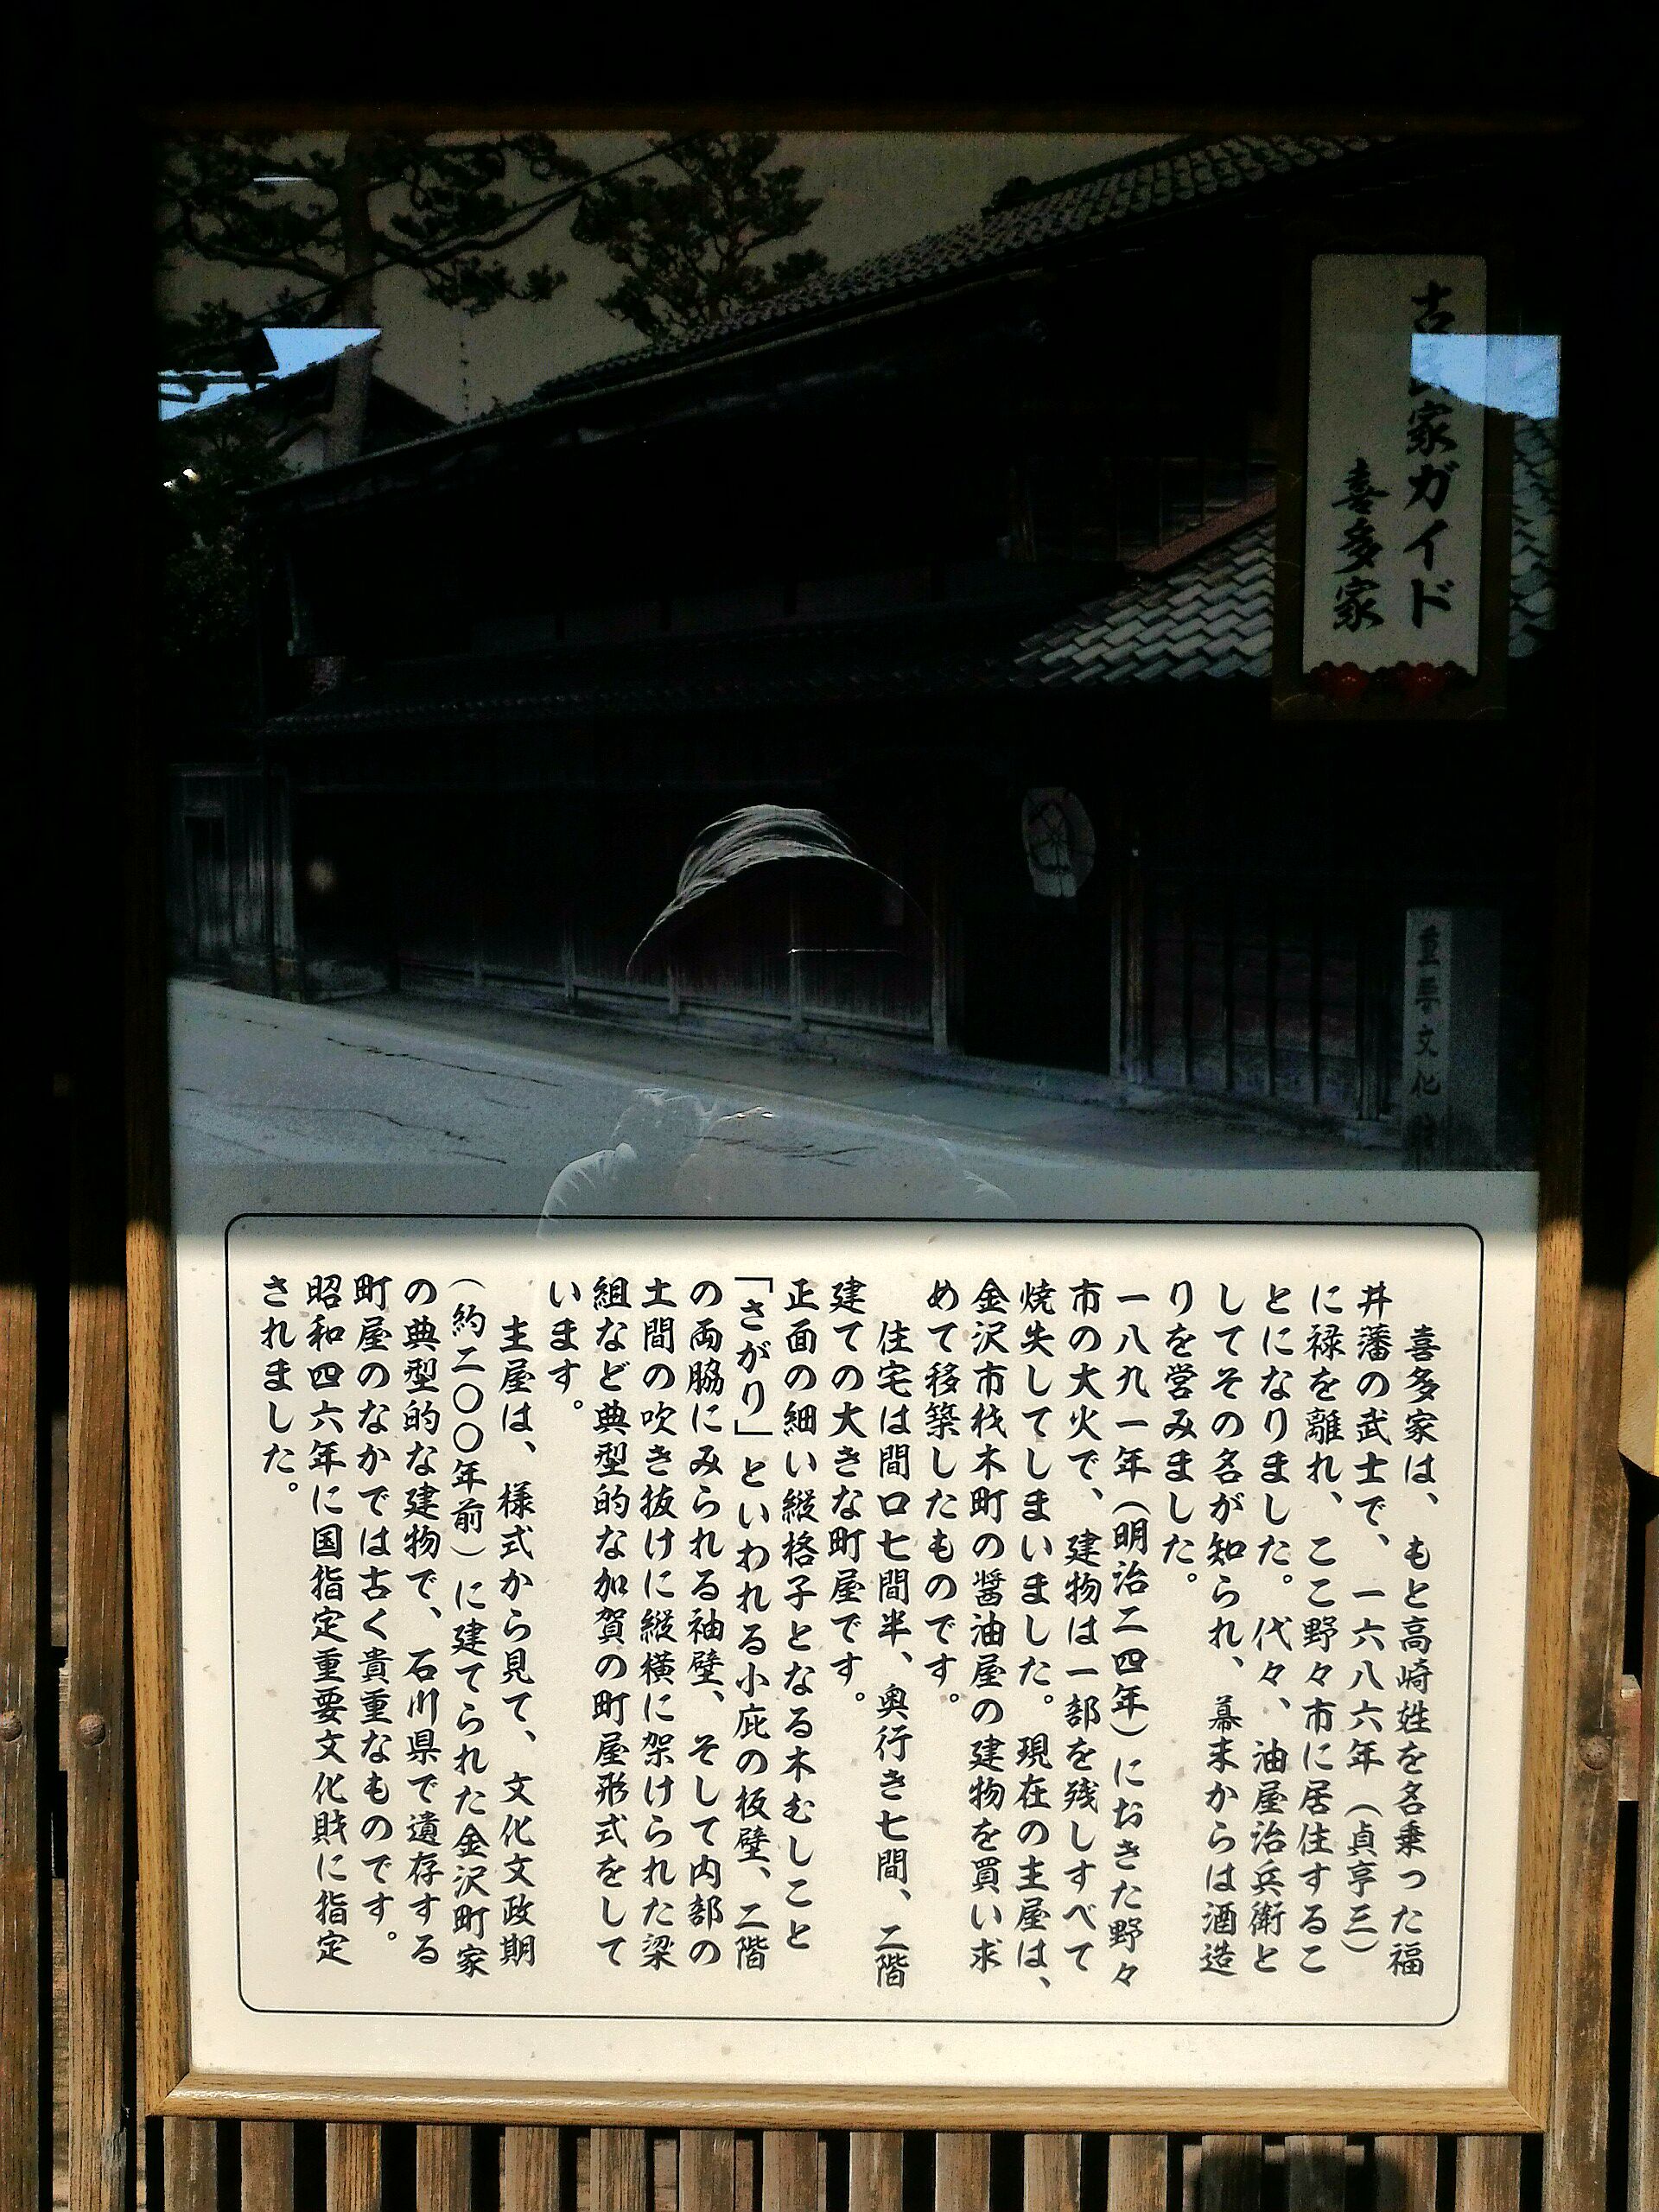 古民家ガイド
喜多家
重要文化財
喜多家は、もと高崎姓を名乗った福
井藩の武士で、一六八六年（貞亨三）
に禄を離れ、ここ野々市に居住するこ
とになりました。代々、油屋治兵衛と
してその名が知られ、幕末からは酒造
りを営みました。
一八九一年（明治二四年）におきた野々
市の大火で、建物は一部を残しすべて
焼失してしまいました。現在の主屋は、
金沢市材木町の醤油屋の建物を買い求
めて移築したものです。
住宅は間口七間半、奥行き七間、二階
建ての大きな町屋です。
正面の細い縦格子となる木むしこと
「さがり」といわれる小庇の板壁、二階
の両脇にみられる袖壁、そして内部の
土間の吹き抜けに縦横に架けられた梁
組など典型的な加賀の町屋形式をして
います。
主屋は、様式から見て、文化文政期
（約二〇〇年前）に建てられた金沢町家
の典型的な建物で、石川県で遺存する
町屋のなかでは古く貴重なものです。
昭和四六年に国指定重要文化財に指定
されました。